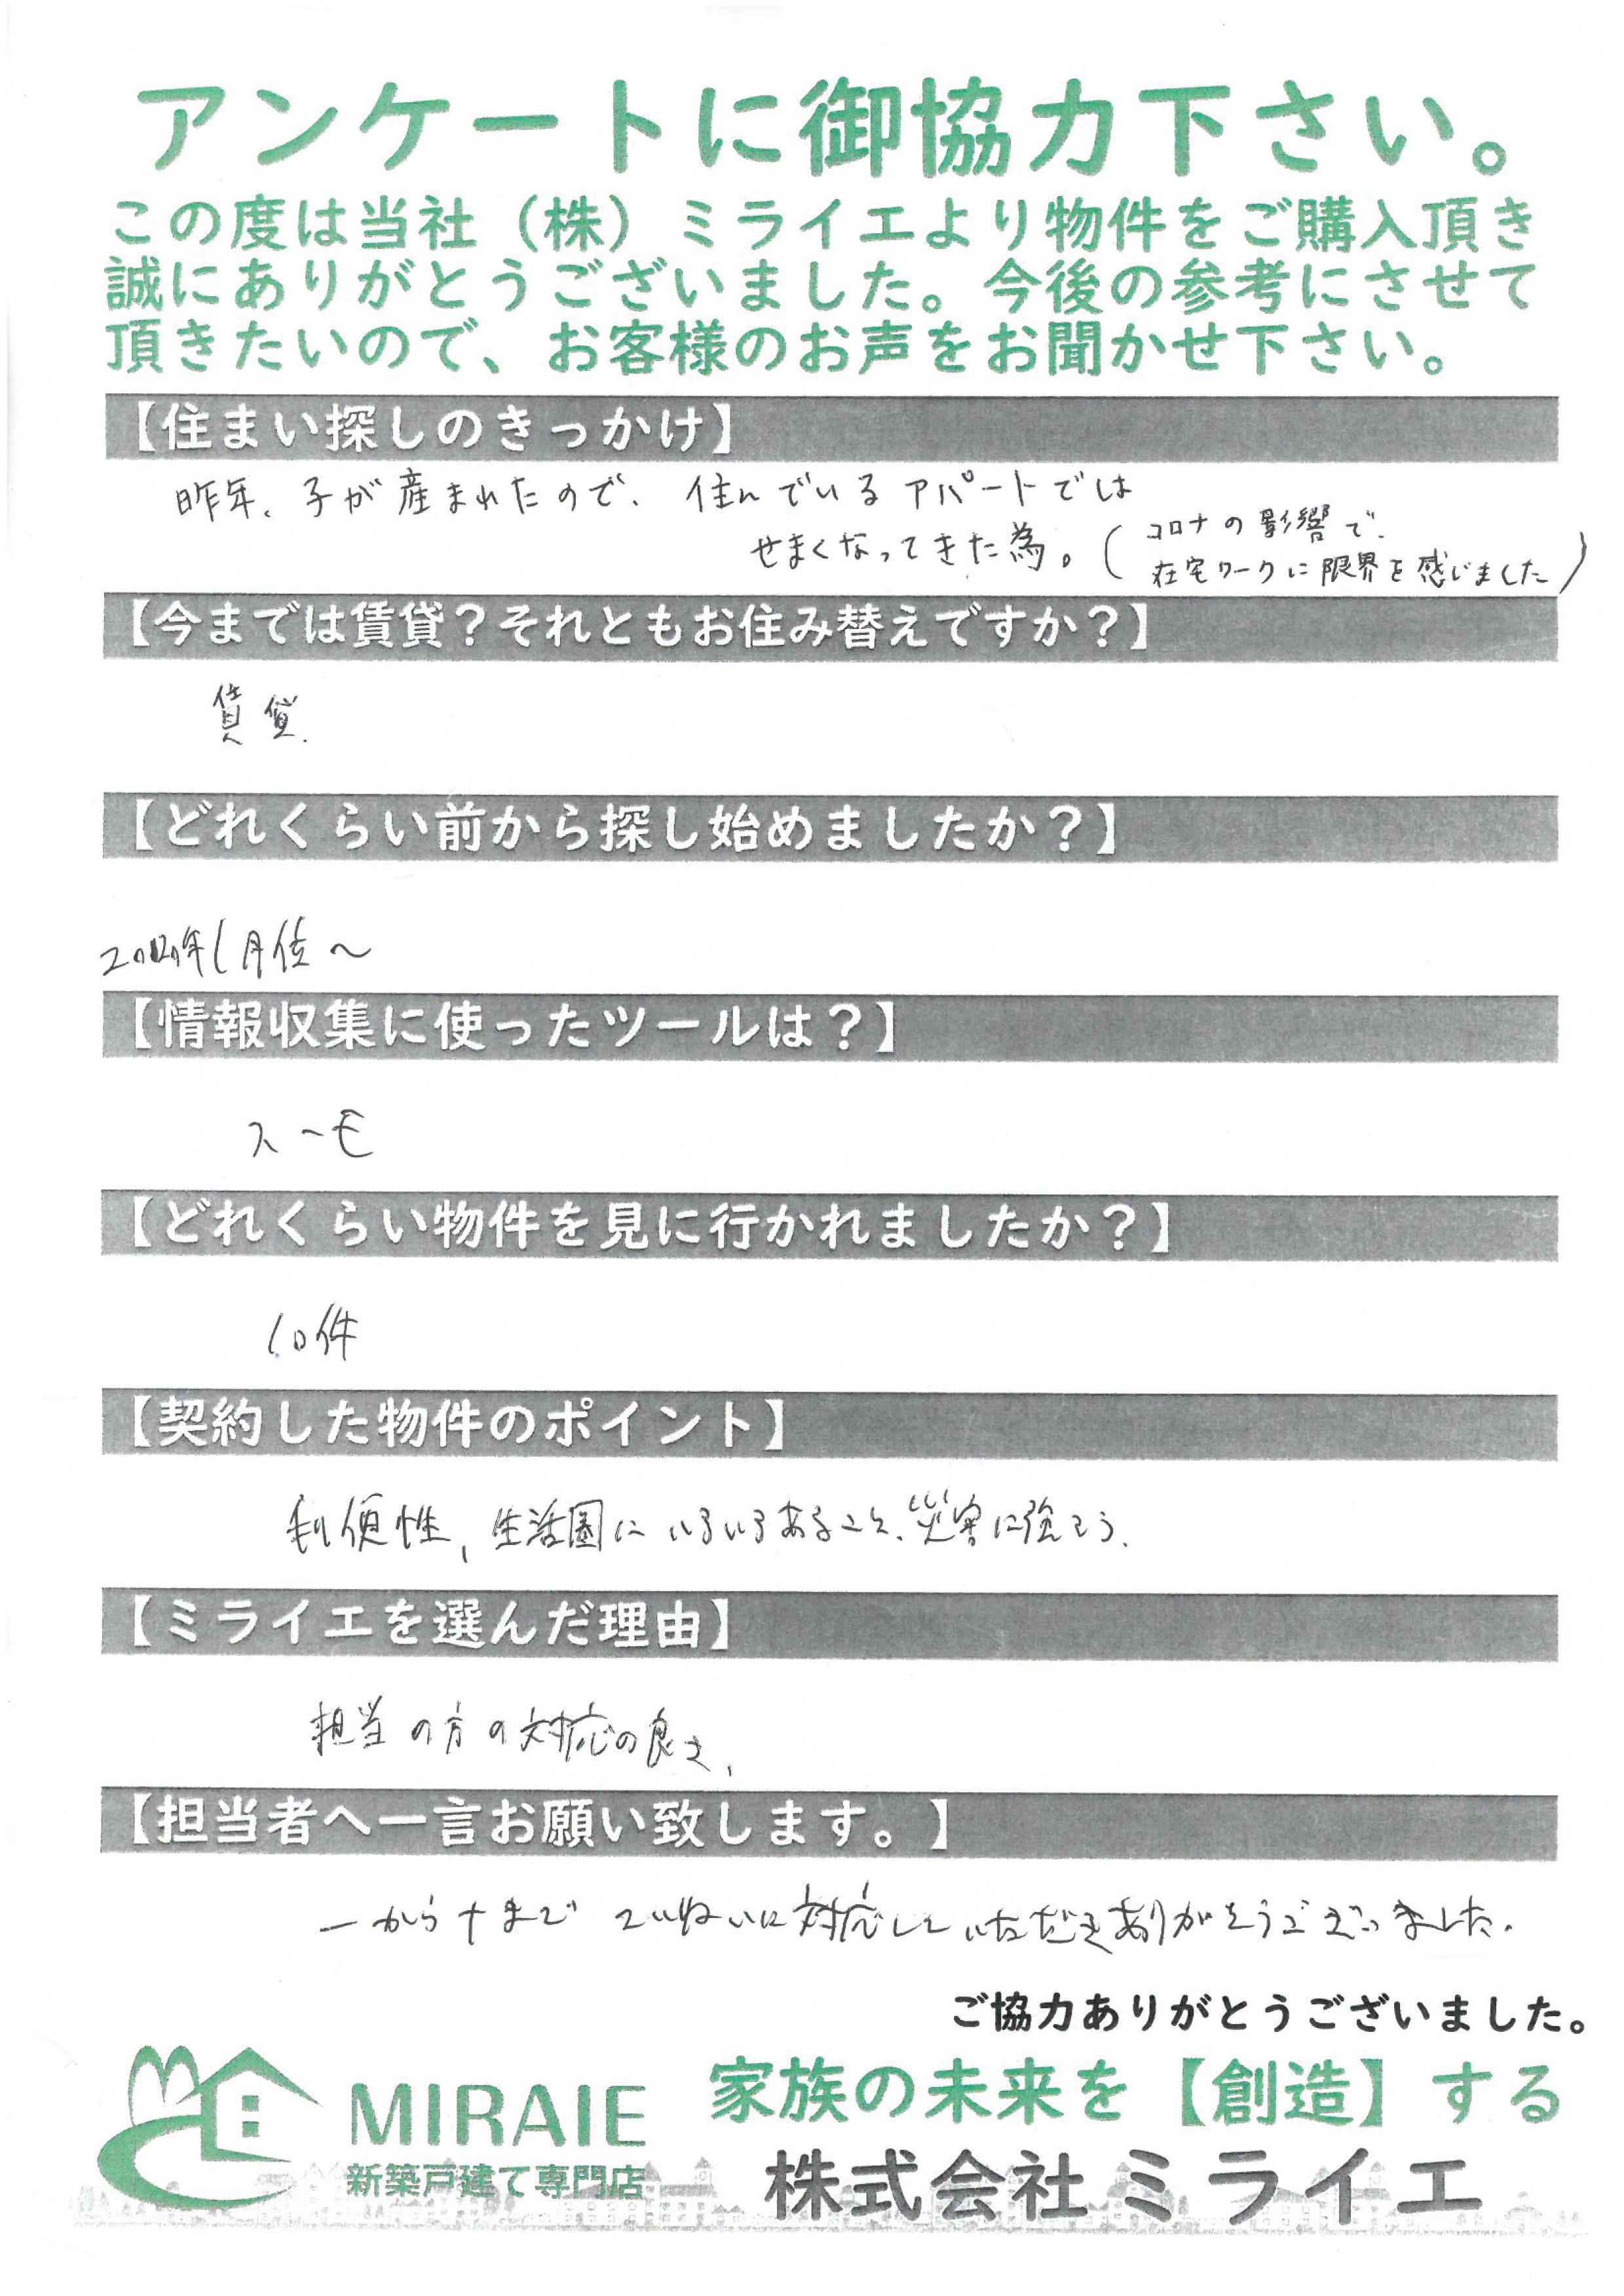 アンケートに御協力下さい。
この度は当社（株）ミライエより物件をご購入頂き
誠にありがとうございました。今後の参考にさせて
頂きたいので、お客様のお声をお聞かせ下さい。
【住まい探しのきっかけ】
昨年、子が産まれたので、住んでいるアパートでは
せまくなってきた為。（コロナの影響で、
在宅ワークに限界を感じました）
【今までは賃貸？それともお住み替えですか？】
賃貸.
【どれくらい前から探し始めましたか？】
年1月位～
【情報収集に使ったツールは？】
スーモ
【どれくらい物件を見に行かれましたか？】
10件
【契約した物件のポイント】
利便性、生活圏にいろいろあること、災害に強そう.
【ミライエを選んだ理由】
担当の方の対応の良さ、
【担当者へ一言お願い致します。】
一から十まで ていねいに対応していただきありがとうございました.
ご協力ありがとうございました。
MIRAIE
新築戸建て専門店
家族の未来を【創造】する
株式会社ミライエ